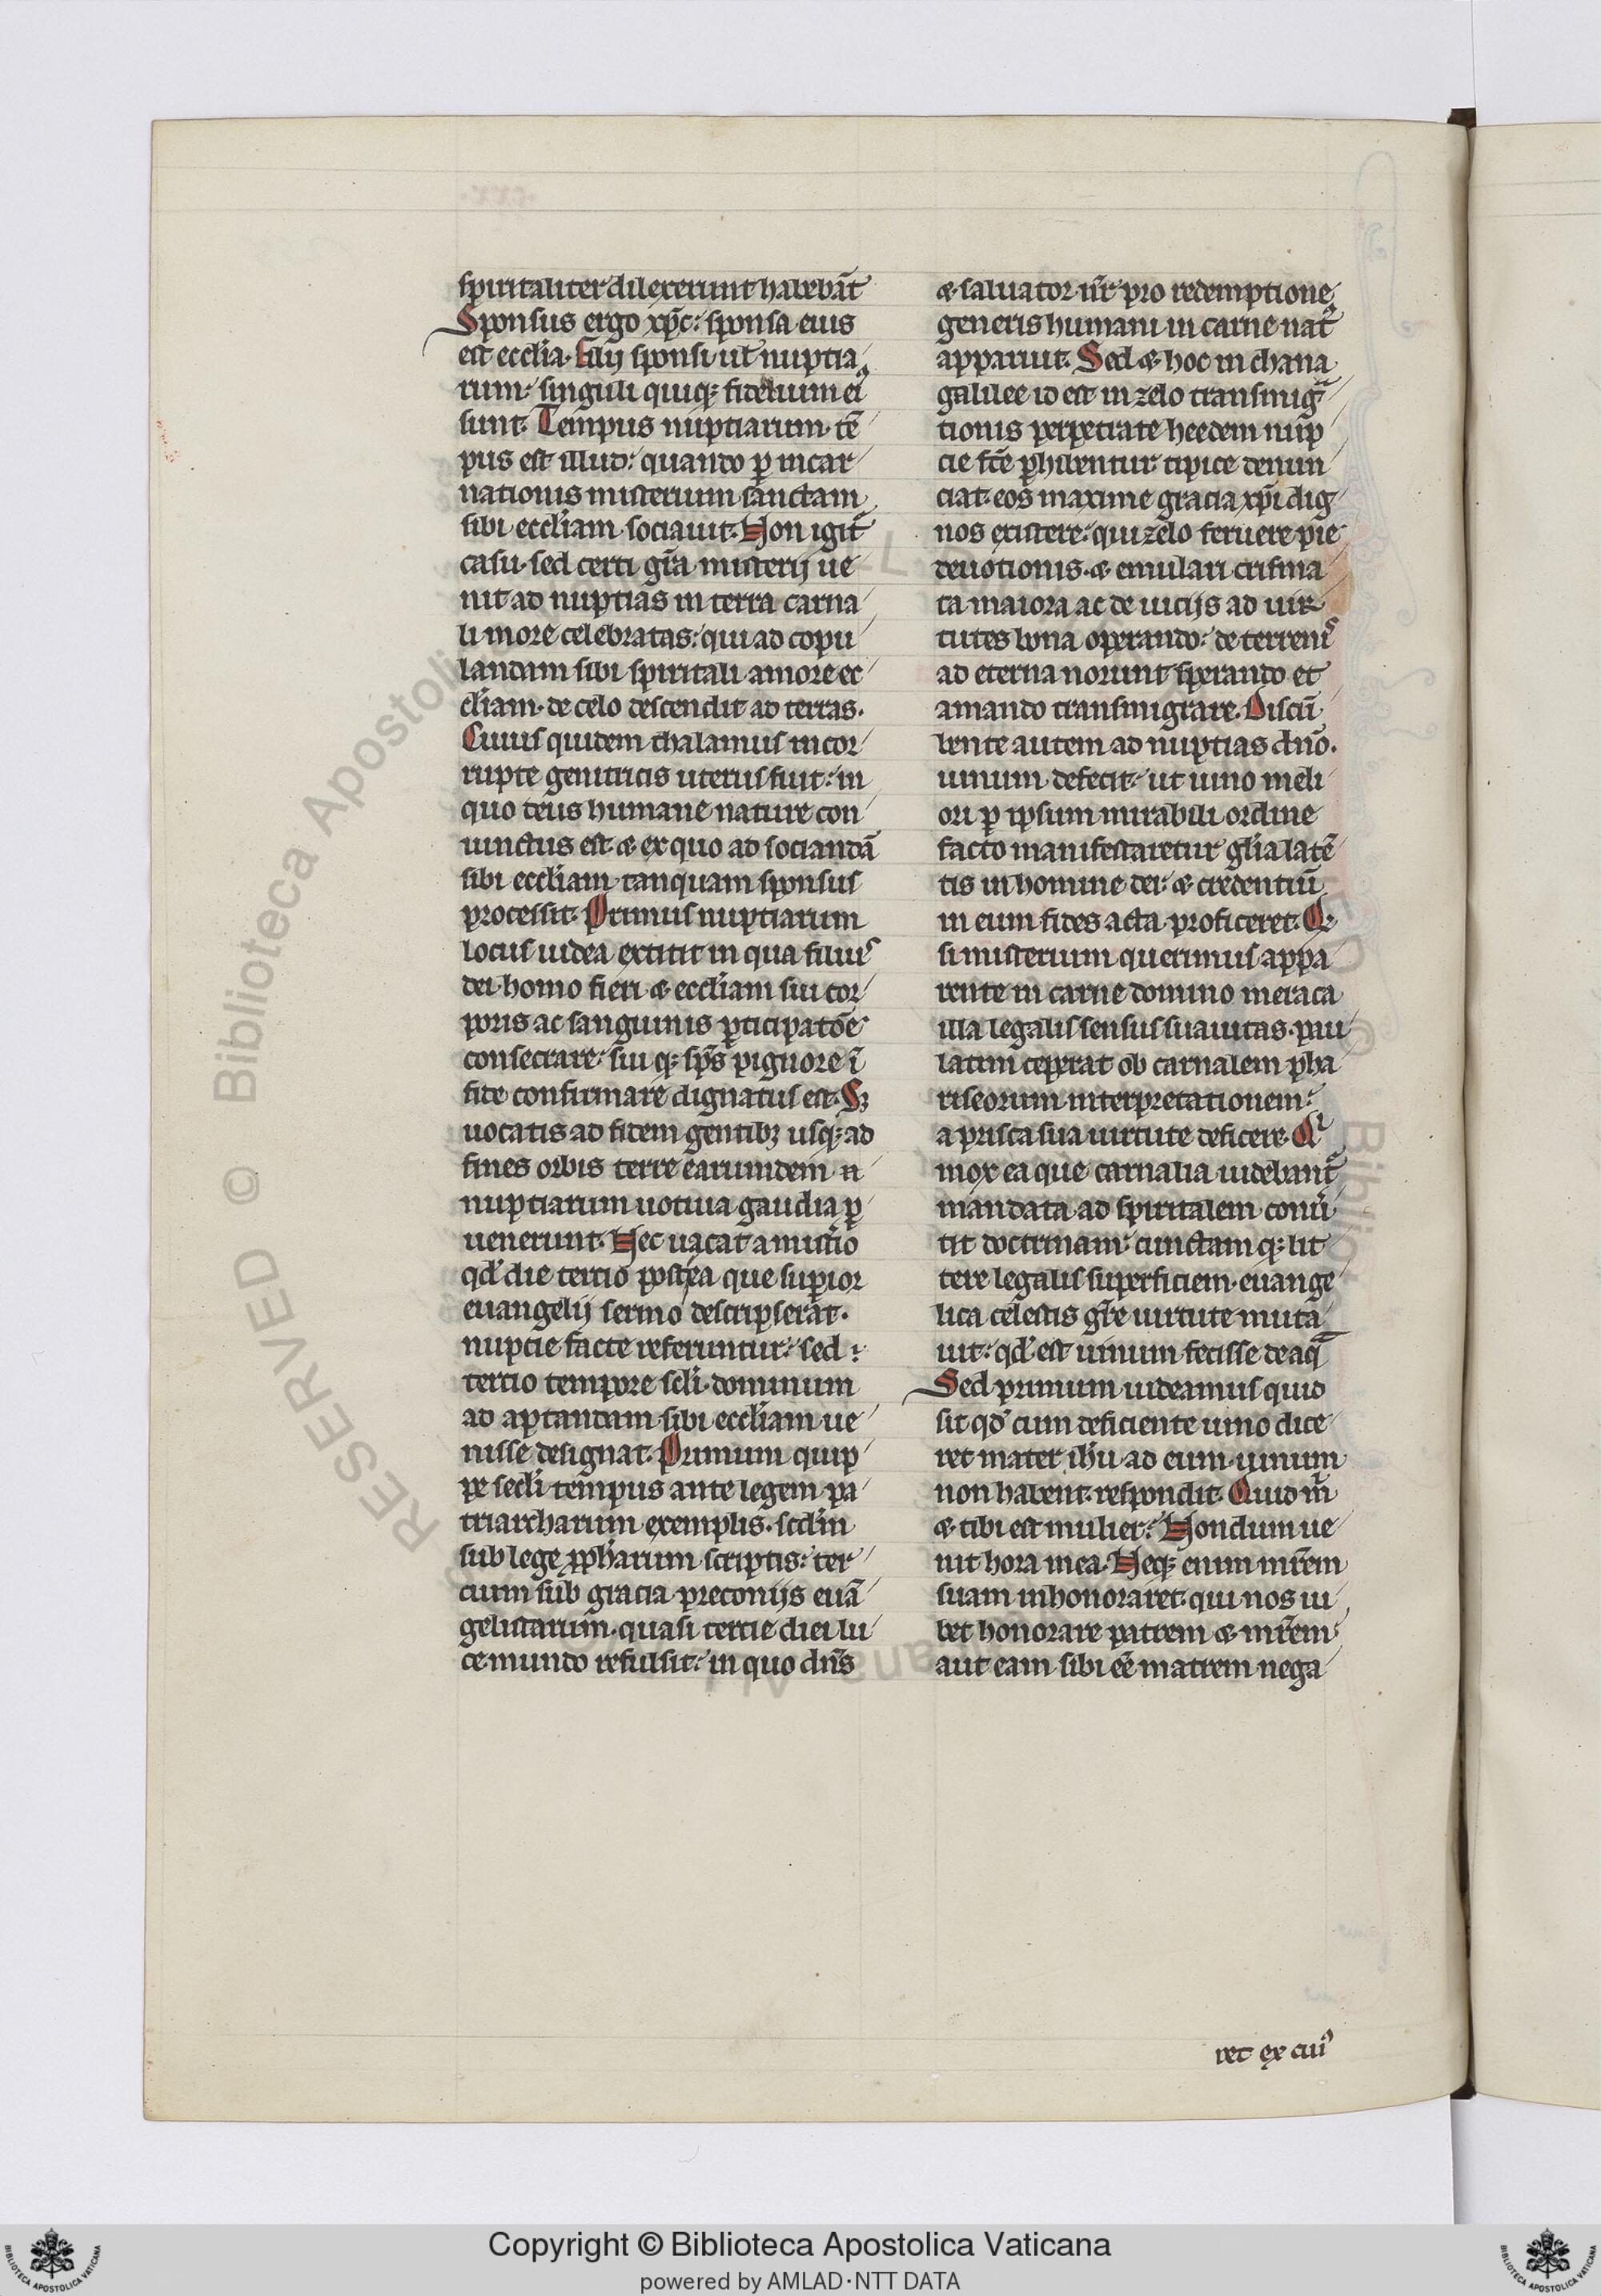 spiritaliter dilexerunt habebāt
Sponsus ergo xp̄c: sponsa eius
est eccl̄ia. Filij sponsi ul̄ nuptia
rum: singuli quiq; fidelium ei᾽
sunt. Tempus nuptiarum tē
pus est illud: quando ꝑ incar
nationis misterium sanctam
sibi eccl̄iam sociauit. Non igit᾽
casu. sed certi gr̄a misterij ue
nit ad nuptias in terra carna
li more celebratas: qui ad copu
landam sibi spiritali amore ec
cl̄iam. de celo descendit ad terras.
Cuius quidem thalamus incor
rupte genitricis uterus fuit: in
quo deus humane nature con
iunctus est. & ex quo ad sociandā
sibi eccl̄iam tanquam sponsus
processit. Primus nuptiarum
locus iudea extitit in qua filius
dei homo fieri & eccl̄iam sui cor
poris ac sanguinis ꝑticipatōe
consecrare: sui q; sp̄s pignore ī
fide confirmare dignatus est. Sꝫ
uocatis ad fidem gentibꝫ usq; ad
fines orbis terre earumdem n
nuptiarum uotiua gaudia ꝑ
uenerunt. Nec uacat a mist̄io
qd̄ die tercio postea que suꝑior
euangelij sermo descripserāt.
nuptie facte referuntur: sed :
tercio tempore scl̄i dominum
ad aptandam sibi eccl̄iam ue
nisse designat. Primum quip
pe secl̄i tempus ante legem pa
triarcharum exemplis. scd̄m
sub lege ꝓph̄arum scriptis: ter
cium sub gracia preconijs euā
gelistarum. quasi tercie diei lu
ce mundo refulsit: in quo dn̄s
& saluator nr̄ pro redemptione
generis humani in carne nat᾽
apparuit. Sed & hoc in chana
galilee id est in zelo transmig̃
tionis perpetrate heedem nup
cie fc̄e ꝑhibentur. tipice denun
ciat. eos maxime gracia xp̄i dig
nos existere: qui zelo feruere pie
deuotionis. & emulari crisma
ta maiora ac de uicijs ad uir
tutes bona operando: de terrenis
ad eterna norunt sperando et
amando transmigrare. Discū
bente autem ad nuptias dn̄o.
uinum defecit: ut uino meli
ori ꝑ ipsum mirabili ordine
facto manifestaretur gl̄ia latē
tis in homine dei: & credentiū
in eum fides acta proficeret. Qr
si misterium querimus appa
rente in carne domino meraca
illa legalis sensus suauitas. pau
latim ceperat ob carnalem pha
riseorum interpretationem:
a prisca sua uirtute deficere. Qi
mox ea que carnalia uidebant᾽
mandata ad spiritalem conu̾
tit doctrinam: cunctam q; lit
tere legalis superficiem. euange
lica celestis gr̄e uirtute muta
uit: qd̄ est uinum fecisse de aq̄
Sed primum uideamus quid
sit qd̄ cum deficiente uino dice
ret mater ih̄u ad eum. uinum
non habent. respondit. Quid m̄
& tibi est mulier: Nondum ue
nit hora mea. Neq; enim mr̄em
suam inhonoraret. qui nos iu
bet honorare patrem & mr̄em.
aut eam sibi eē matrem nega
ret ex cui᾽
Copyright © Biblioteca Apostolica Vaticana
powered by AMLAD·NTT DATA